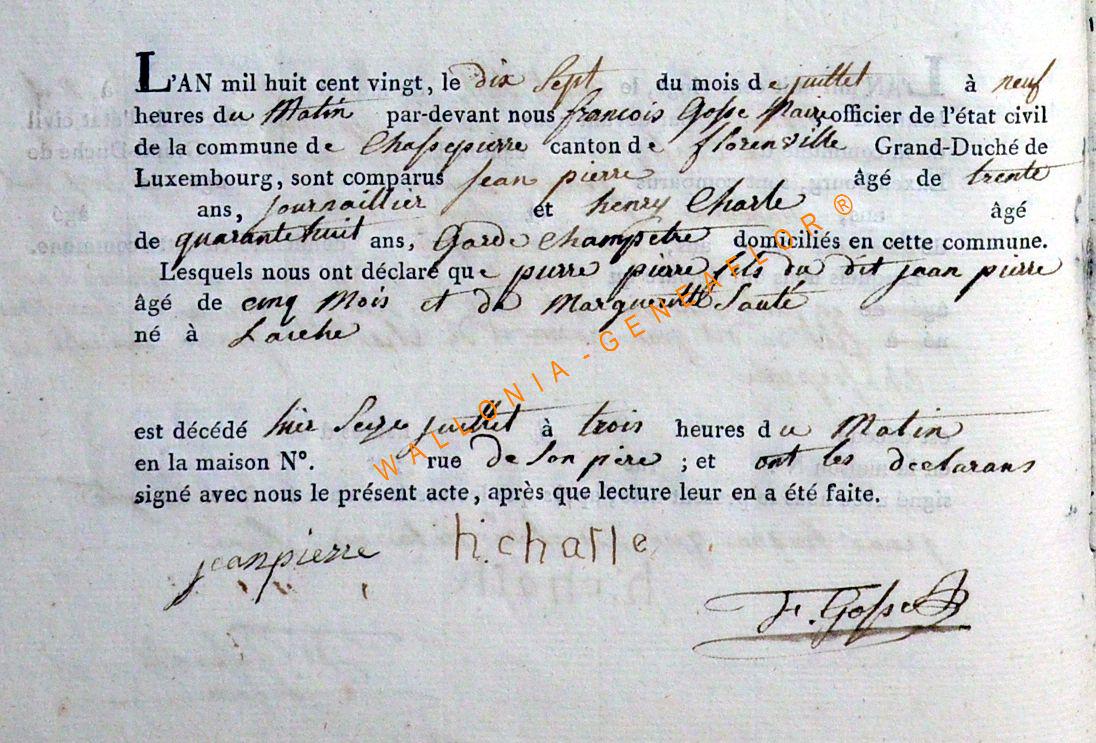 L'AN mil huit cent vingt, le dix Sept du mois de juillet à neuf
heures du Matin par-devant nous francois Gosse Maire officier de l'état civil
de la commune de Chassepierre canton de florenville Grand-Duché de
Luxembourg, sont comparus jean pierre âgé de trente
ans, journaillier et henry Charle âgé
de quarantehuit ans, Garde Champetre domiciliés en cette commune.
Lesquels nous ont déclaré que pierre pierre fils du dit jean pierre
âgé de cinq Mois et de Margueritte Sauté
né à Laiche
est décédé hier Seize juillet à trois heures du Matin
en la maison N°. rue de Son père ; et ont les declarans
signé avec nous le présent acte, après que lecture leur en a été faite.
jeanpierre h.charle
F. Gosse
WALLONIA - GENEAFLOR ®